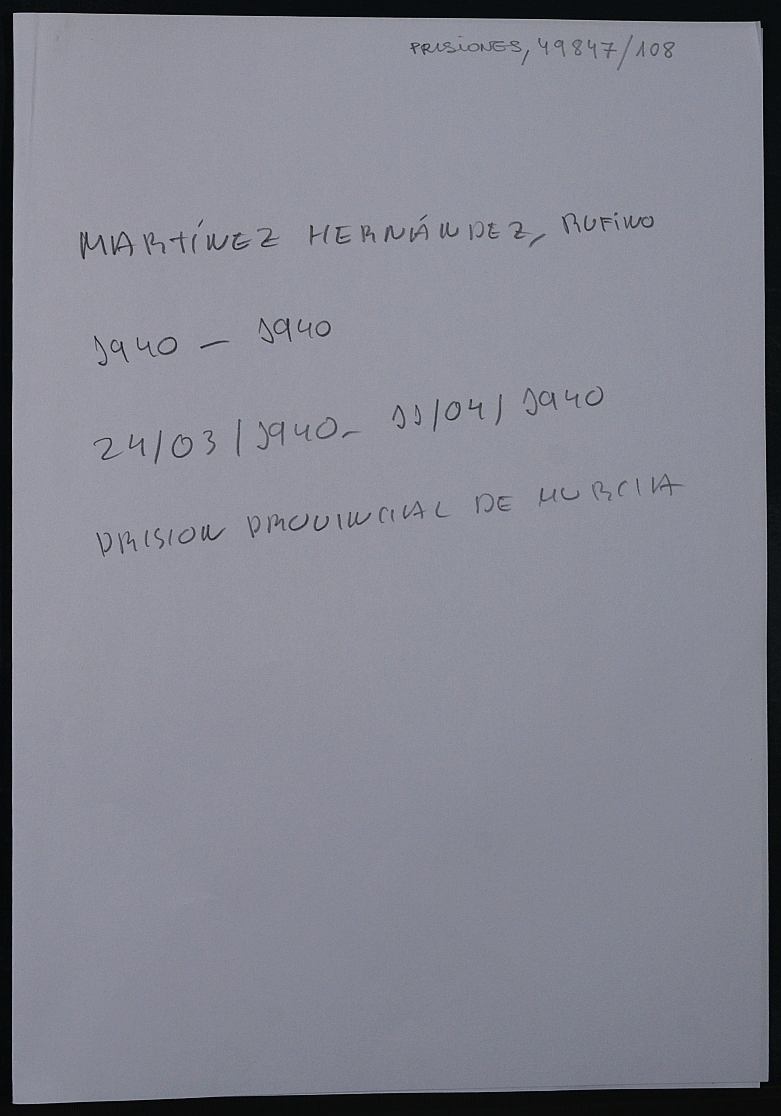 PRISIONES, 49847/108
MARTÍNEZ HERNÁNDEZ, RUFINO
1940 – 1940
24/03/1940 – 11/04/1940
PRISION PROVINCIAL DE MURCIA